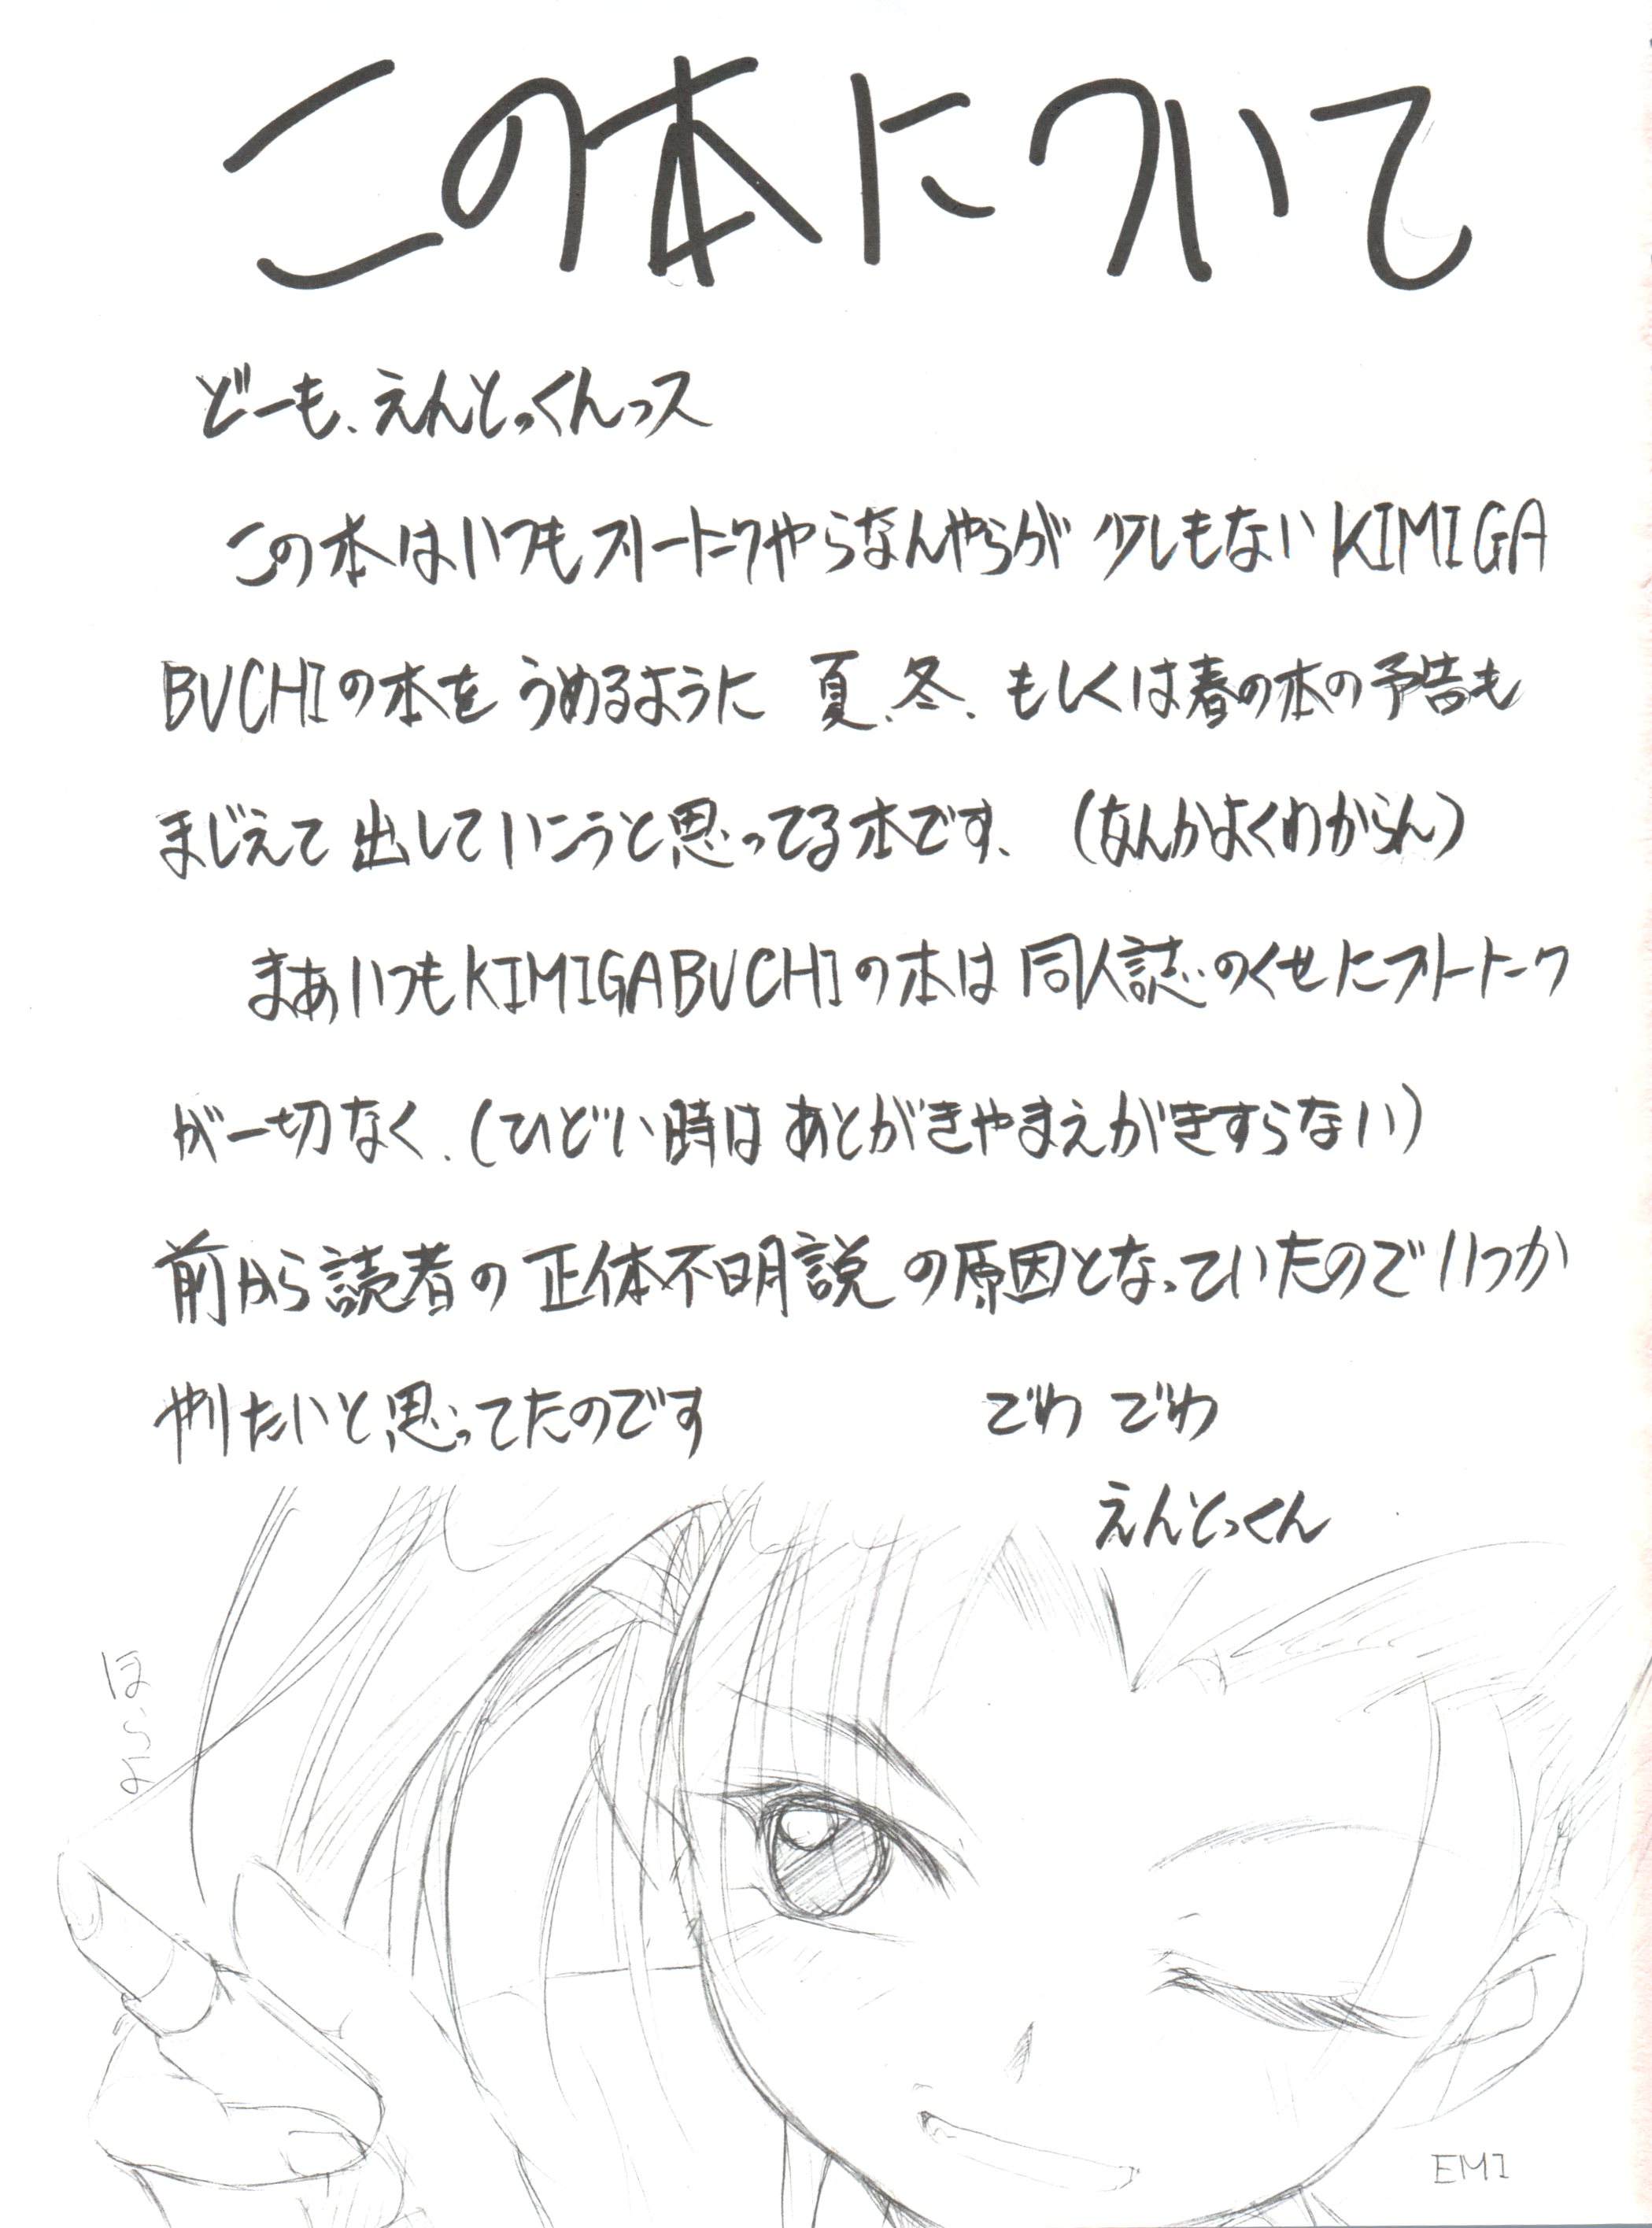 この本について
どーも、えんとっくんっス
この本はいつもフリートークやらなんやらが少しもないKIMIGA
BUCHIの本をうめるように 夏、冬、もしくは春の本の予告も
まじえて出していこうと思ってる本です、(なんかよくわからん)
まあいつもKIMIGABUCHIの本は同人誌のくせにフリートーク
が一切なく、(ひどい時はあとがきやまえがきすらない)
前から読者の正体不明説の原因となっていたのでいつか
やりたいと思ってたのです でわ でわ
えんとっくん
ほらよ
EMI